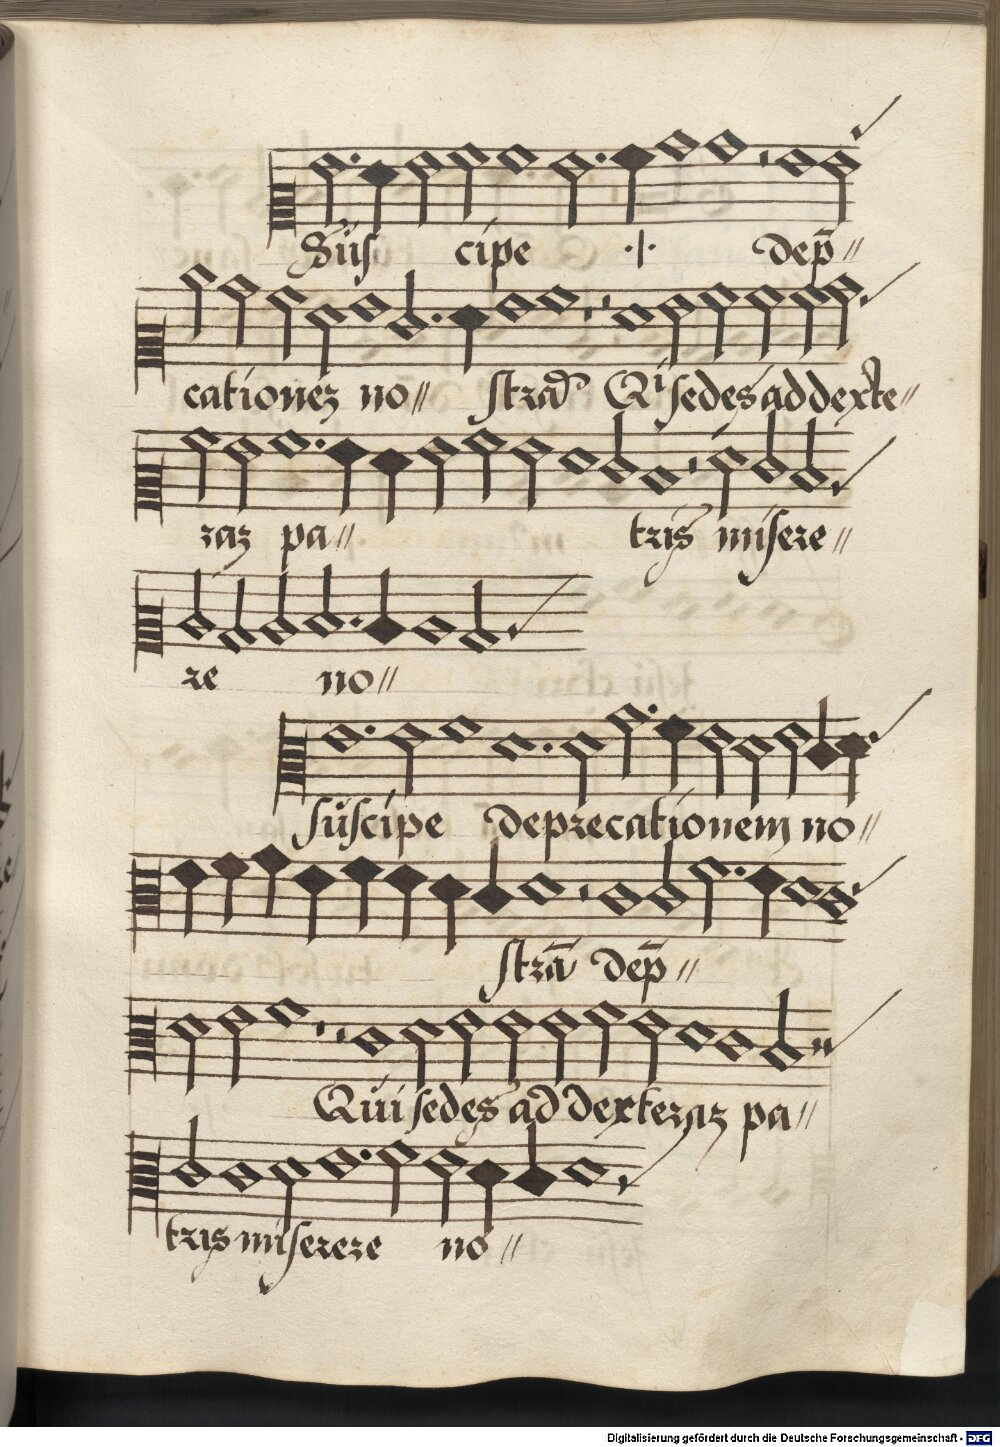 Suscipe ·|· dep̄ //
cationez no // stram Qi sedes ad dexte //
raz pa // tris misere //
re no //
suscipe deprecationem no //
strā dep̄ //
Qui sedes ad dexteraz pa //
tris miserere no //
Digitalisierung gefördert durch die Deutsche Forschungsgemeinschaft - DFG